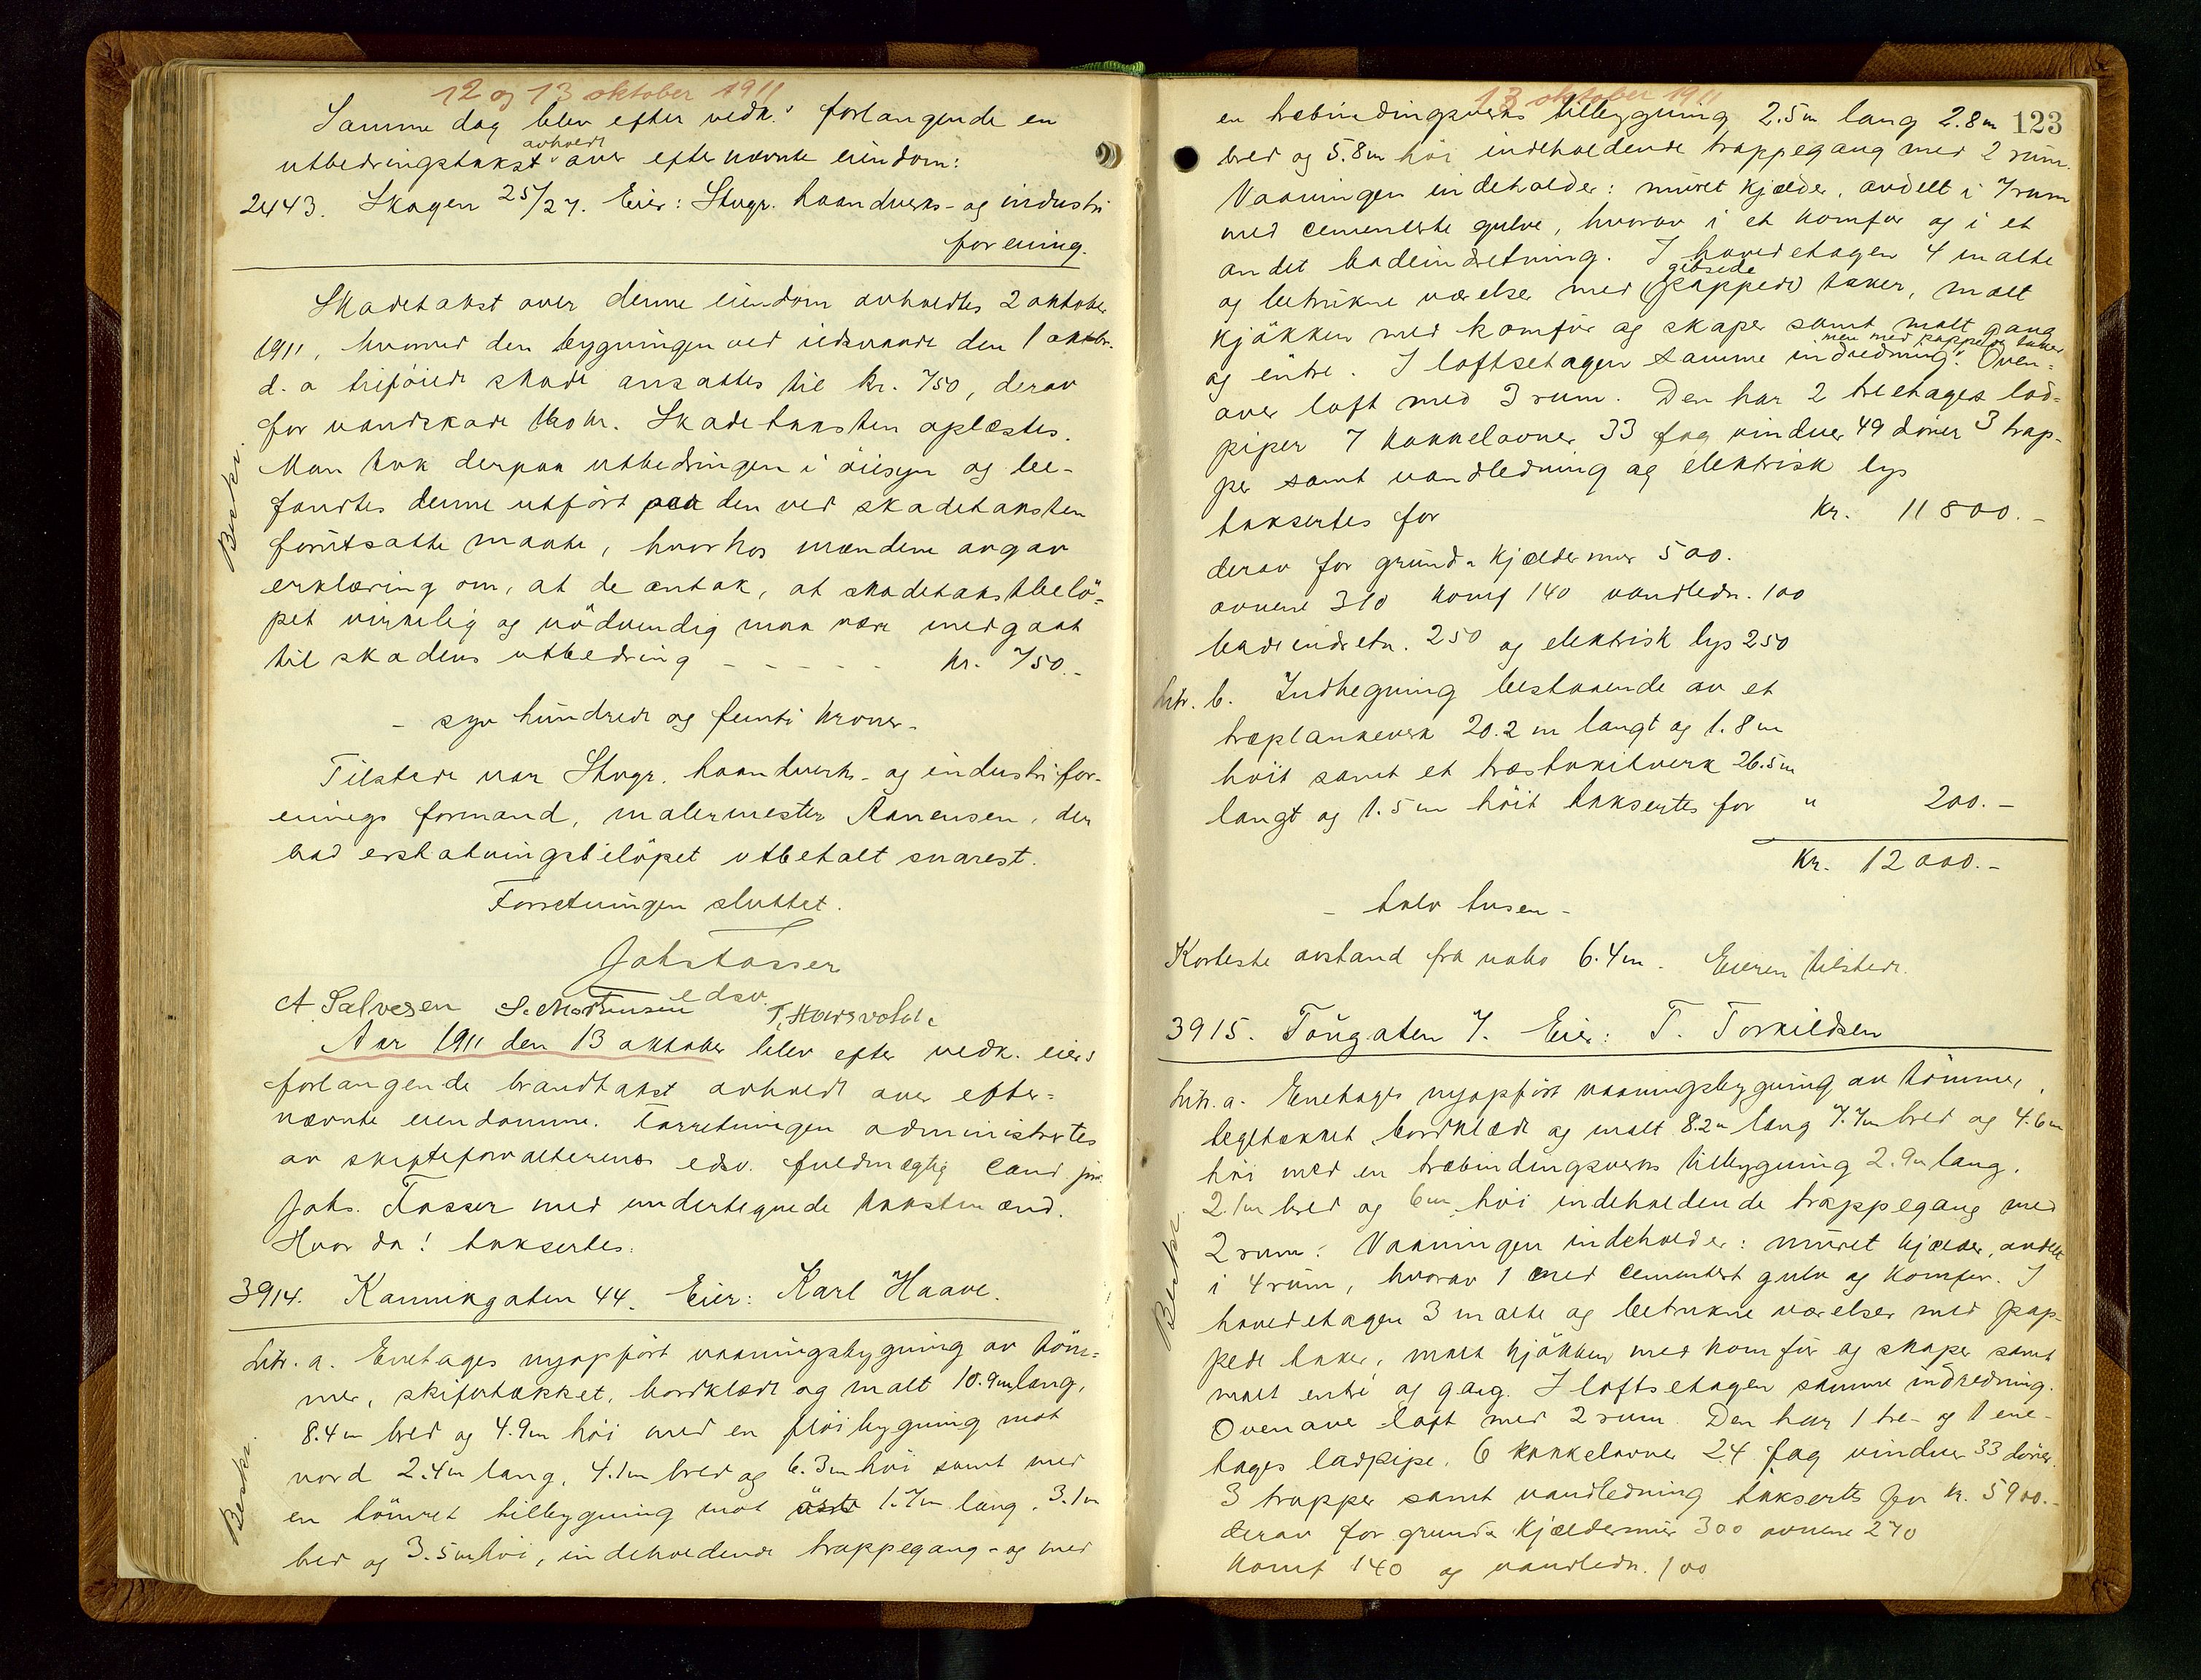 12 og 13 oktober 1911
Samme dag blev efter vedk.s forlangende en
utbedringstakst avholdt over efternævnte eiendom:
2443. Skagen 25/27. Eier: Stvgr. haandverks- og industri
forening.
Skadetakst over denne eiendom avholdtes 2 oktober
1911, hvorved den bygningen ved ildsvaade den 1 oktbr.
d. a tilföiede skade ansattes til kr. 750, derav
for vandskade 160 kr. Skadetaksten oplæstes.
Man tok derpaa utbedringen i öiesyn og be-
fandtes denne utfört paa den ved skadetaksten
forutsatte maate, hvorhos mændene avgav
erklæring om, at de antok, at skadetakstbelö-
pet virkelig og nödvendig maa være medgaat
til skadens utbedring - - - - - kr. 750.-
- syv hundrede og femti kroner -
Tilstede var Stvgr. haandverks- og industrifor-
enings formand, malermester Aanensen, der
bad erstatningsbelöpet utbetalt snarest.
Forretningen sluttet.
Johs Tasser
edsv.
A. Salvesen S. Mortensen T. Housvolde
Beskr.
Aar 1911 den 13 oktober blev efter vedk. eiers
forlangende brandtakst avholdt over efter-
nævnte eiendomme. Forretningen administrertes
av skifteforvalterens edsv. fuldmægtig cand. jur.
Johs. Tasser med undertegnede takstmænd.
Hvor da! taksertes:
3914. Kannikgaten 44. Eier: Karl Haave.
Litr. a. Enetages nyopfört vaaningsbygning av töm-
mer, skifertækket, bordklædt og malt 10.9m lang,
8.4m bred og 4.9m höi med en flöibygning mot
nord 2.4m lang, 4.1m bred og 6.3m höi samt med
en tömret tilbygning mot öst 1.7m lang, 3.1m
bred og 3.5m höi, indeholdende trappegang - og med
Beskr.
13 oktober 1911
123
en træbindingsverks tilbygning 2.5m lang 2.8m
bred og 5.8m höi indeholdende trappegang med 2 rum.
Vaaningen indeholder: muret kjælder, avdelt i 7 rum
med cementerte gulve, hvorav i et komfur og i et
andet badeindretning. I hovedetagen 4 malte
og betrukne værelser med gibsede (pappede) taker, malt
kjökken med komfur og skaper samt malt gang
og entre. I loftsetagen samme indredning men med pappede taker. Oven-
over loft med 3 rum. Den har 2 treetages lod-
piper 7 kakkelovner 33 fag vinduer 49 dörer 3 trap-
per samt vandledning og elektrisk lys
taksertes for kr. 11800.-
derav for grund & kjældermur 500.
ovnene 310 komf 140 vandledn. 100
badeindretn. 250 og elektrisk lys 250
Litr. b. Indhegning bestaaende av et
træplankeverk 20.2 m langt og 1.8 m
höit samt et træstakitverk 26.5 m
langt og 1.5 m höit taksertes for " 200.-
Kr. 12000.-
- tolv tusen -
Korteste avstand fra nabo 6.4m. Eieren tilstede.
3915. Töugaten 7. Eier: T. Torkildsen
Litr. a. Enetages nyopfört vaaningsbygning av tömmer,
tegltækket bordklædt og malt 8.2m lang 7.7m bred og 4.6m
höi med en træbindingsverks tilbygning 2.9m lang,
2.1m bred og 6m höi indeholdende trappegang med
2 rum. Vaaningen indeholder: muret kjælder, avdelt
i 4 rum, hvorav 1 med cementert gulv og komfur. I
hovedetagen 3 malte og betrukne værelser med pap-
pede taker, malt kjökken med komfur og skaper samt
malt entré og gang. I loftsetagen samme indredning.
Ovenover loft med 2 rum. Den har 1 tre- og 1 ene-
tages lodpipe, 6 kakkelovne 24 fag vinduer 33 dörer,
3 trapper samt vandledning taksertes for kr. 5900.-
derav for grund & kjældermur 300 ovnene 270
komf 140 og vandledn. 100
Beskr.